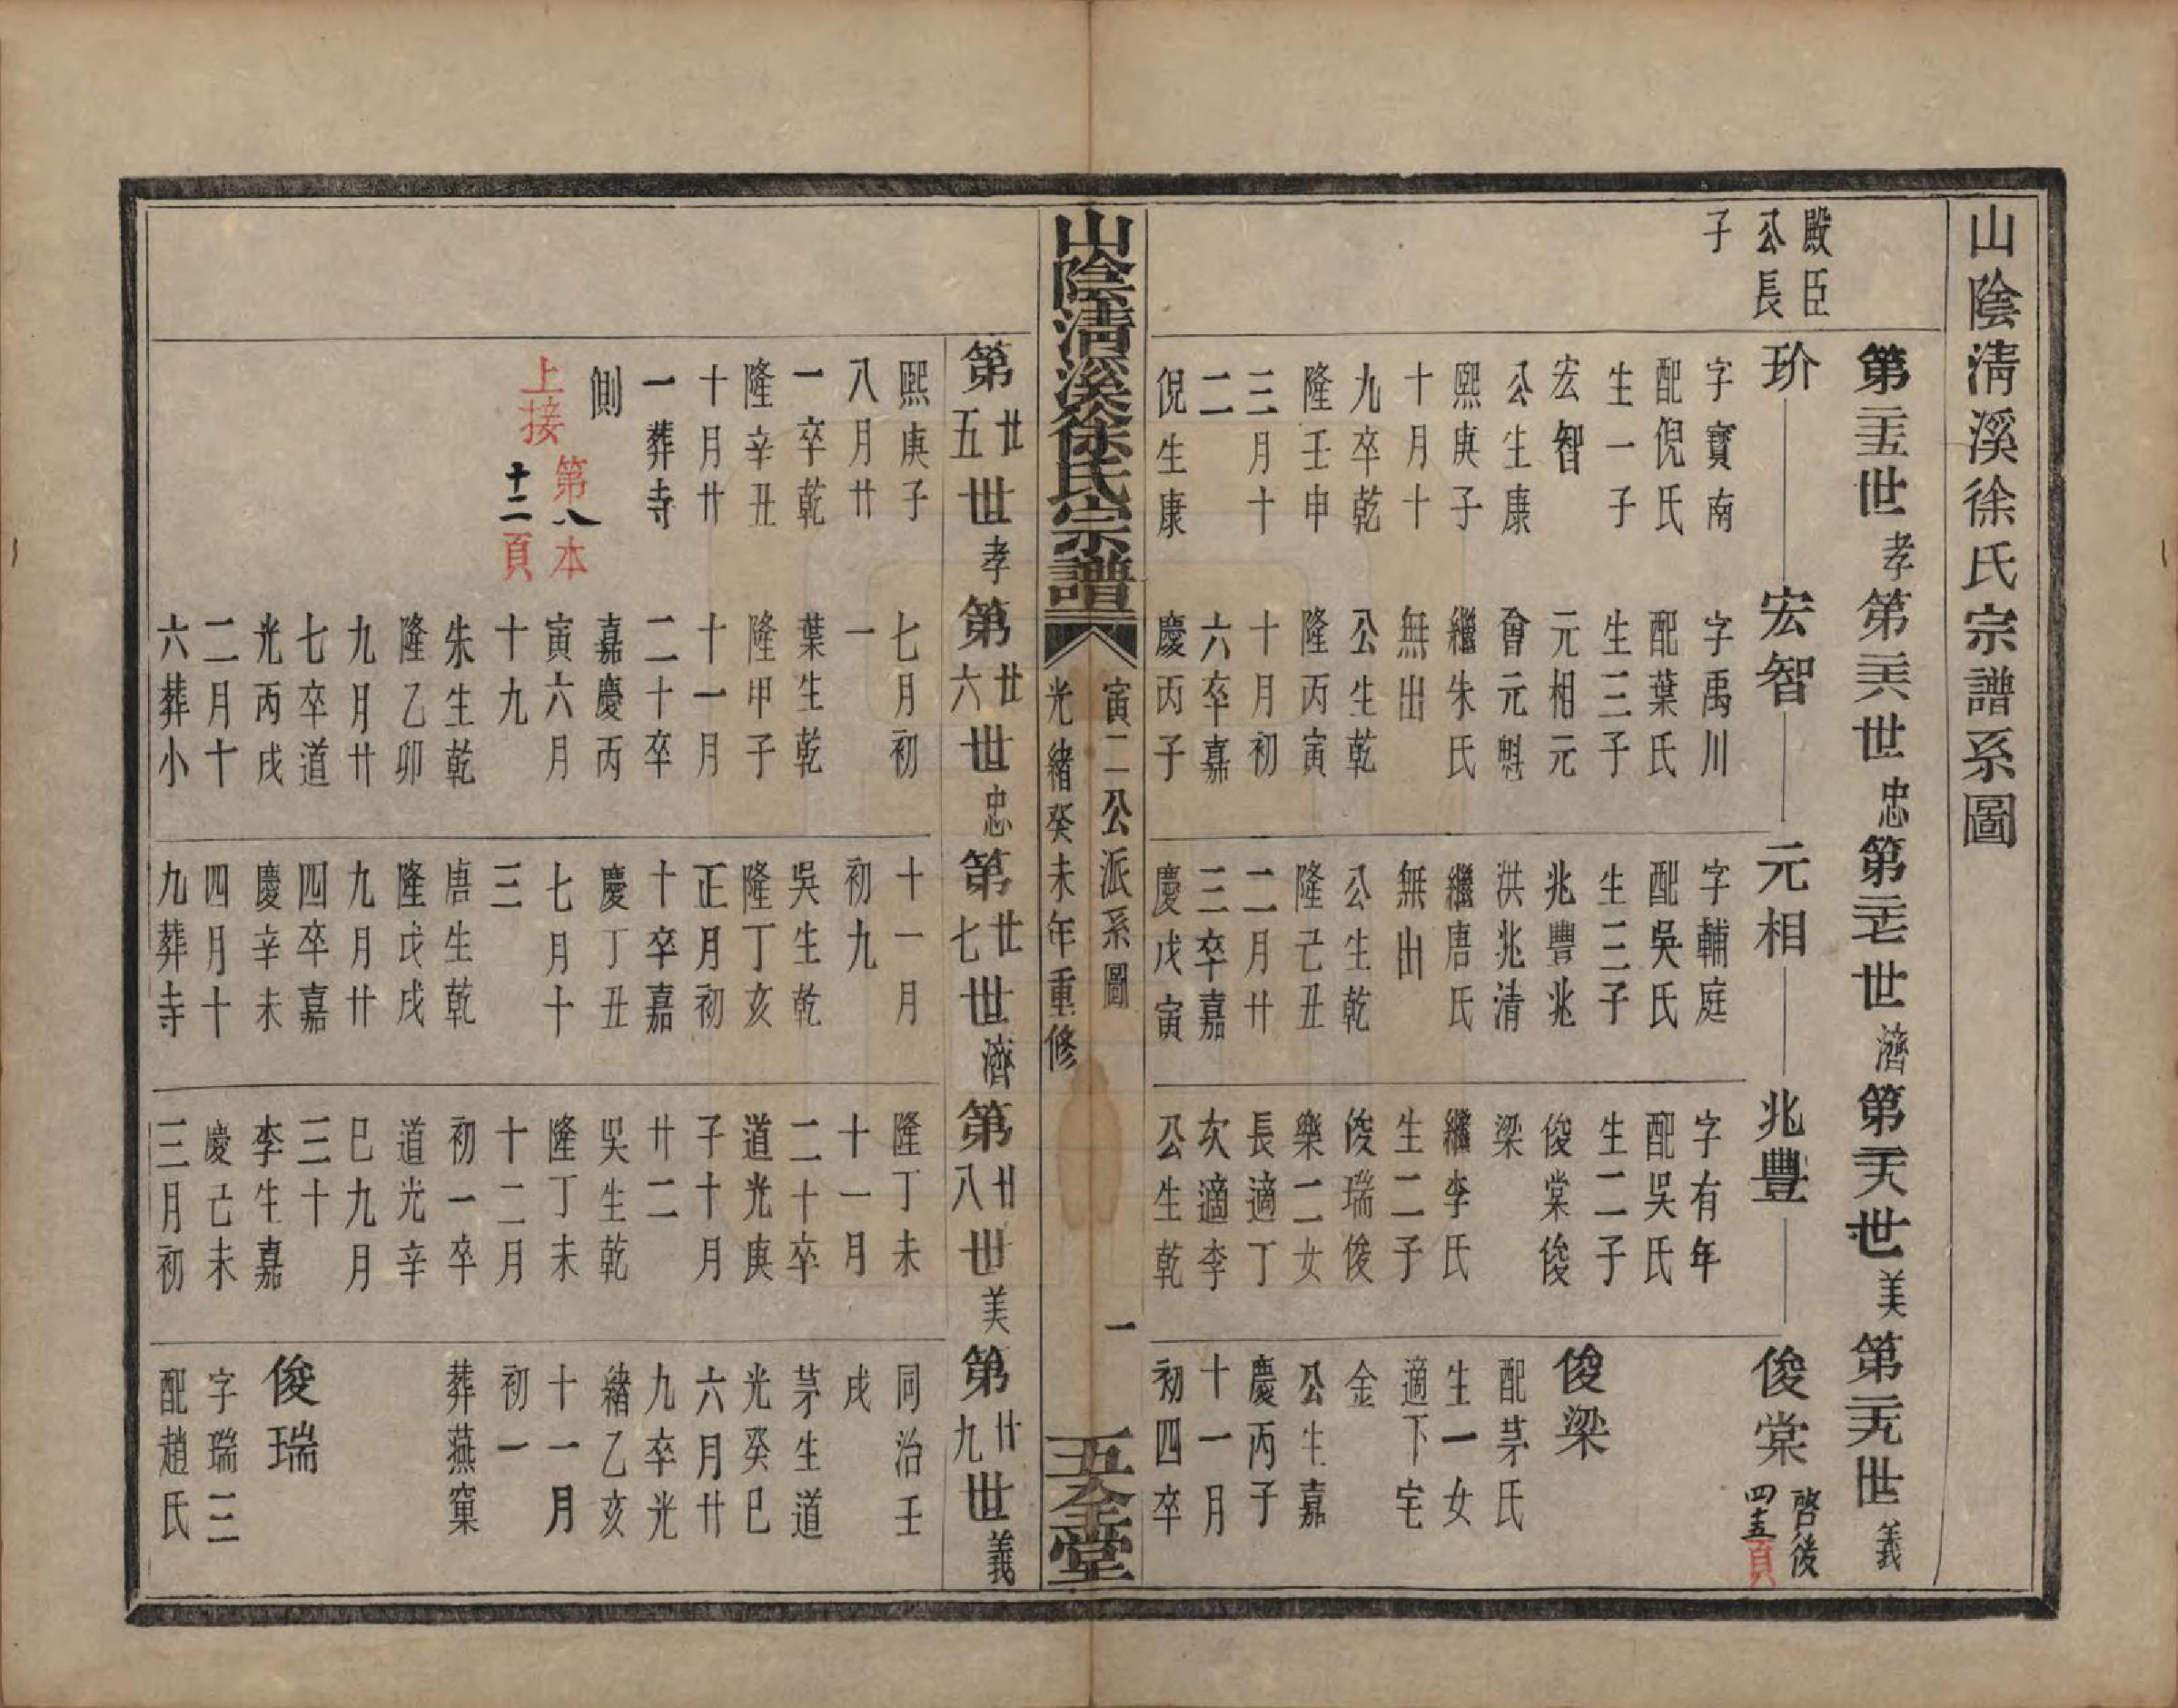 山陰淸溪徐氏宗譜系圖
第廿五世孝 第廿六世忠 第廿七世濟 第廿八世美 第廿九世義
殿臣
公長
子
玠 宏智 元相 兆豐 俊棠 啓後
四十五頁
字寳南
配倪氏
生一子
宏智
公生康
熙庚子
十月十
九卒乾
隆壬申
三月十
二
倪生康
字禹川
配葉氏
生三子
元相元
會元魁
繼朱氏
無出
公生乾
隆丙寅
十月初
六卒嘉
慶丙子
字輔庭
配吳氏
生三子
兆豐兆
洪兆清
繼唐氏
無出
公生乾
隆己丑
二月廿
三卒嘉
慶戊寅
字有年
配吳氏
生二子
俊棠俊
梁
繼李氏
生二子
俊瑞俊
樂二女
長適丁
次適李
公生乾
俊梁
配茅氏
生一女
適下宅
金
公生嘉
慶丙子
十一月
初四卒
山陰淸溪徐氏宗譜
寅二公派系圖
光緒癸未年重修
一
五全堂
第廿五世孝 第廿六世忠 第廿七世濟 第廿八世美 第廿九世義
熙庚子
八月廿
一卒乾
隆辛丑
十月廿
一葬寺
側
上接
第八本
十二頁
七月初
一
葉生乾
隆甲子
十一月
二十卒
嘉慶丙
寅六月
十九
朱生乾
隆乙卯
九月廿
七卒道
光丙戌
二月十
六葬小
十一月
初九
吳生乾
隆丁亥
正月初
十卒嘉
慶丁丑
七月十
三
唐生乾
隆戊戌
九月廿
四卒嘉
慶辛未
四月十
九葬寺
隆丁未
十一月
二十卒
道光庚
子十月
廿二
吳生乾
隆丁未
十二月
初一卒
道光辛
巳九月
三十
李生嘉
慶己未
三月初
同治壬
戌
茅生道
光癸巳
六月廿
九卒光
緒乙亥
十一月
初一
葬燕窠
俊瑞
字瑞三
配趙氏